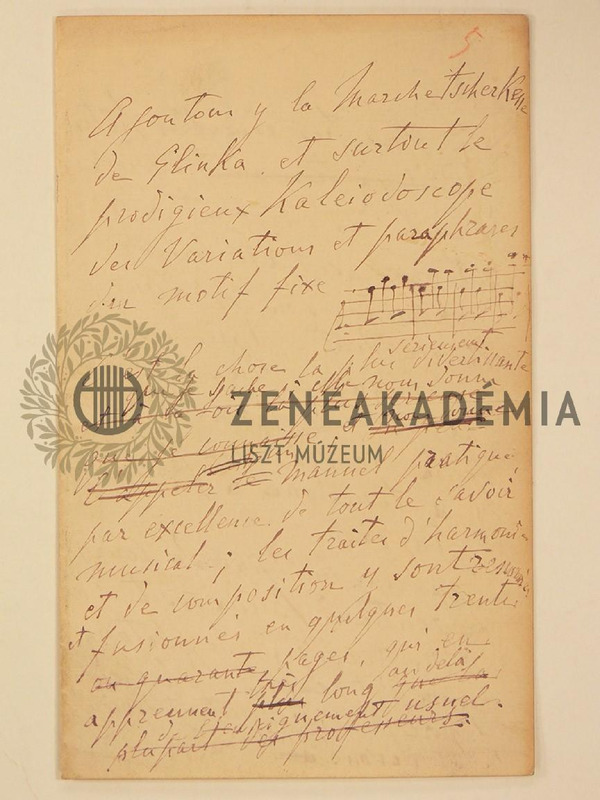 5
Ajoutons y la Marche tscherkesse
de Glinka et surtout le
prodigieux Kaleidoscope
des Variations et paraphrases
du motif fixe
sérieusement
la chose la plus divertissante
ZENEAKADÉMIA
LISZT MÚZEUM
l'appeler le Manuel pratique
par excellence de tout le savoir
musical; les traités d'harmonie
et de composition y sont résumés
et fusionnés en quelques trente
ou quarante pages, qui en
apprennent très long au delà
de l'enseignement usuel.
plupart des professeurs.